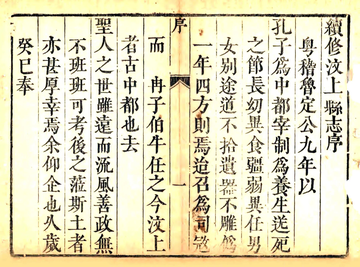 續修汶上縣志序
粵稽魯定公九年以
孔子為中都宰制為養生送死
之節長幼異食疆弱異任男
女別途道不拾遺器不雕偽
一年四方則焉迨召為司寇
序
一
而　冉子伯牛任之今汶上
者古中都也去
聖人之世雖遠而沉風善政無
不班班可考後之蒞斯土者
亦甚厚幸焉余仰企也久歲
癸巳奉